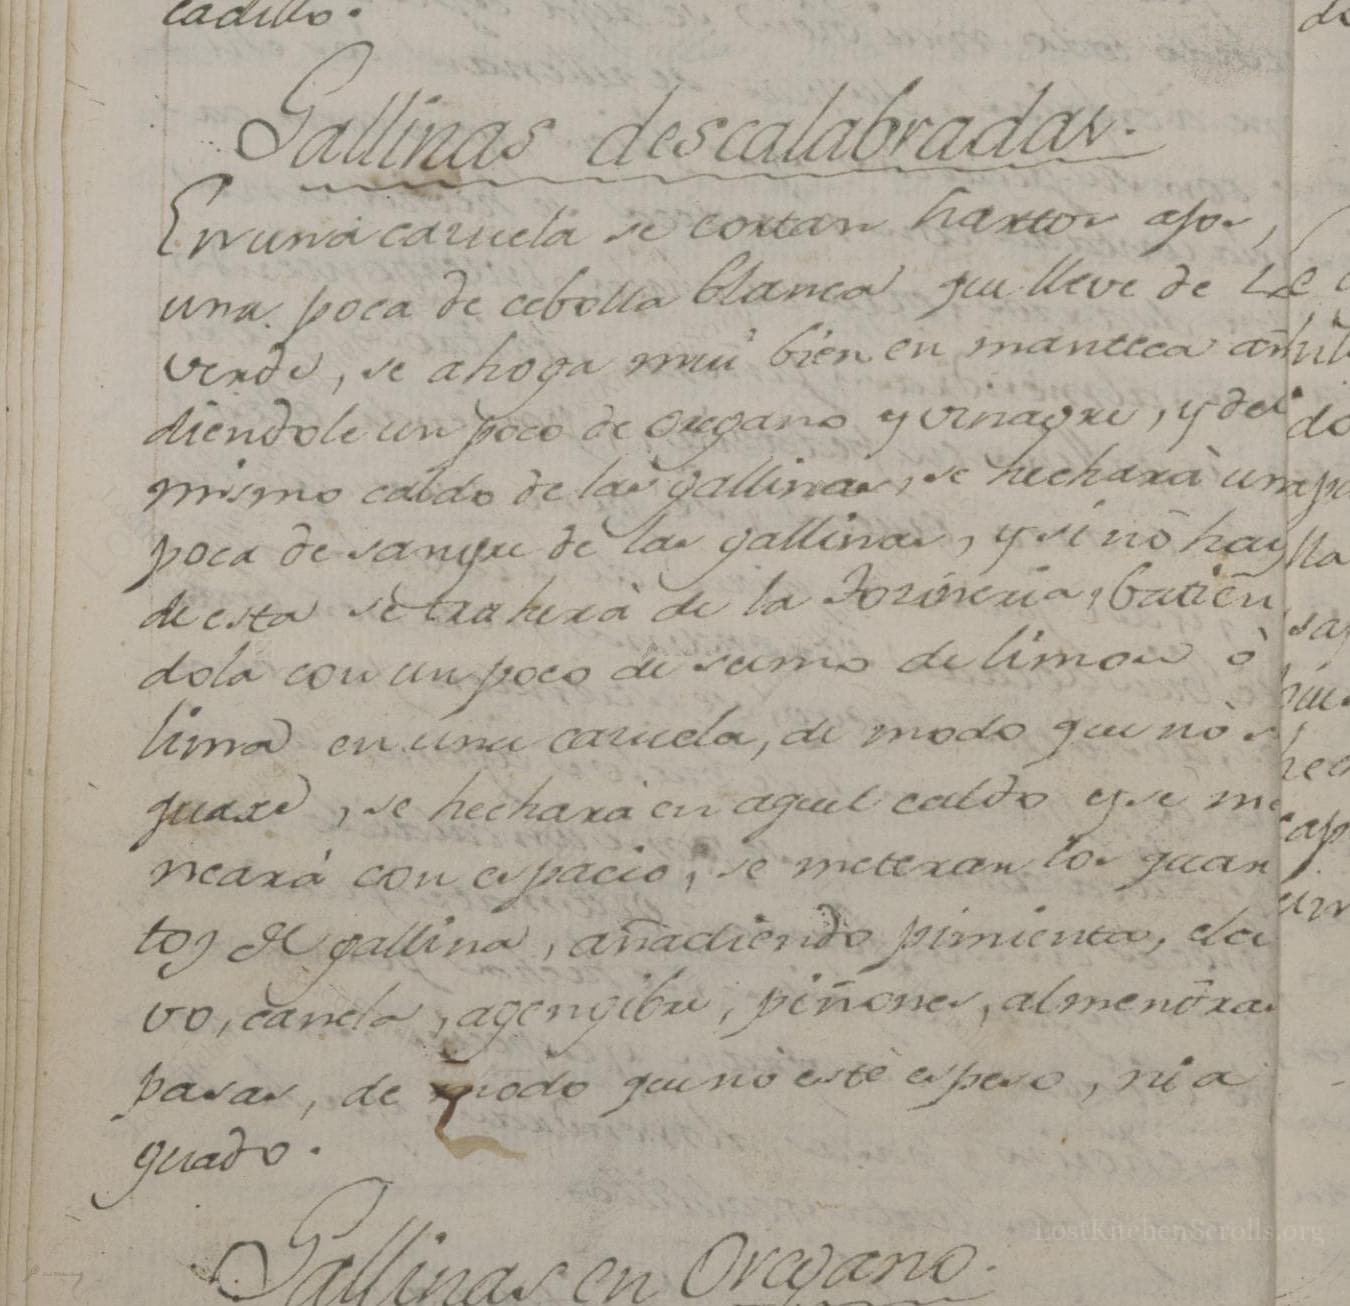 cadillo.
Gallinas descalabradas.
En una cazuela se cortan hartos ajos,
una poca de cebolla blanca que lleve de lo
verde, se ahoga mui bien en manteca aña
diendole un poco de oregano y vinagre, y del
mismo caldo de las gallinas, se hechará una
poca de sangre de las gallinas, y si nó hay
de esta se traherá de la Tozineria, batien
dola con un poco de sumo de limon ó
lima en una cazuela, de modo que nó
quaxe, se hechará en aquel caldo y se me
neará con espacio, se meteran los quar
tos de gallina, añadiendo pimienta, cla
vo, canela, agengibre, piñones, almendras
pasas, de modo que no esté espeso, ni a
guado.
Gallinas en Oregano.
LostKitchenScrolls.org